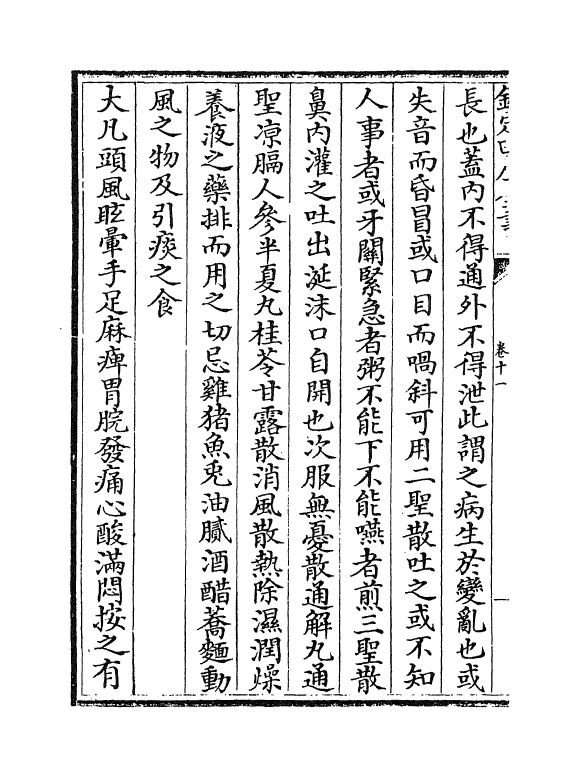 卷十一
長也蓋内不得通外不得泄此謂之病生於變亂也或
失音而昏冒或口目而喎斜可用二聖散吐之或不知
人事者或牙關緊急者粥不能下不能嚥者煎三聖散
鼻内灌之吐出涎沫口自開也次服無憂散通解丸通
聖凉膈人參半夏丸桂苓甘露散消風散熱除濕潤燥
養液之藥排而用之切忌雞猪魚兎油膩酒醋蕎麵動
風之物及引痰之食
大凡頭風眩暈手足麻痺胃脘發痛心酸滿悶按之有